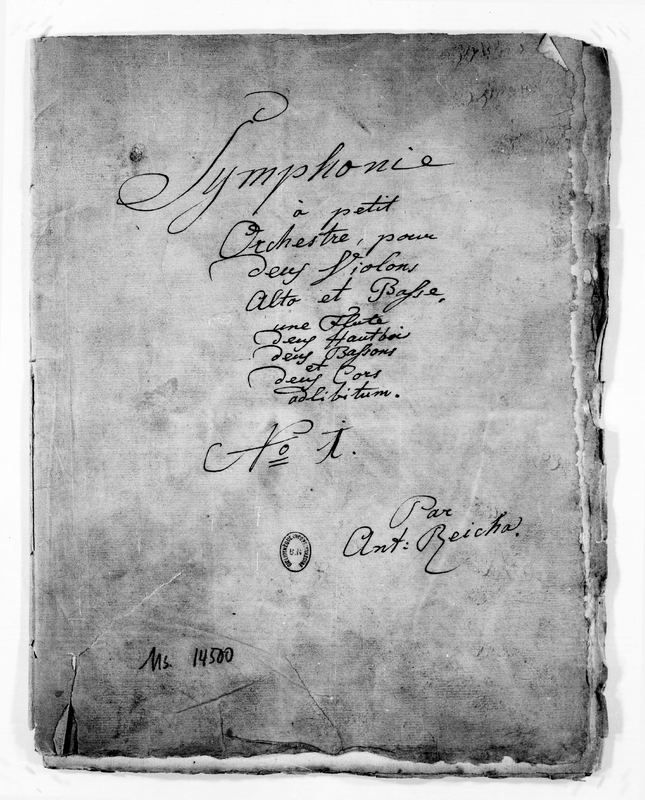 Symphonie
à petit
Orchestre, pour
deux Violons
Alto et Basse,
une Flute
deux Hautboi
deux Bassons
et
deux Cors
adlibitum.
No 1.
Par
Ant: Reicha.
Ms. 14500